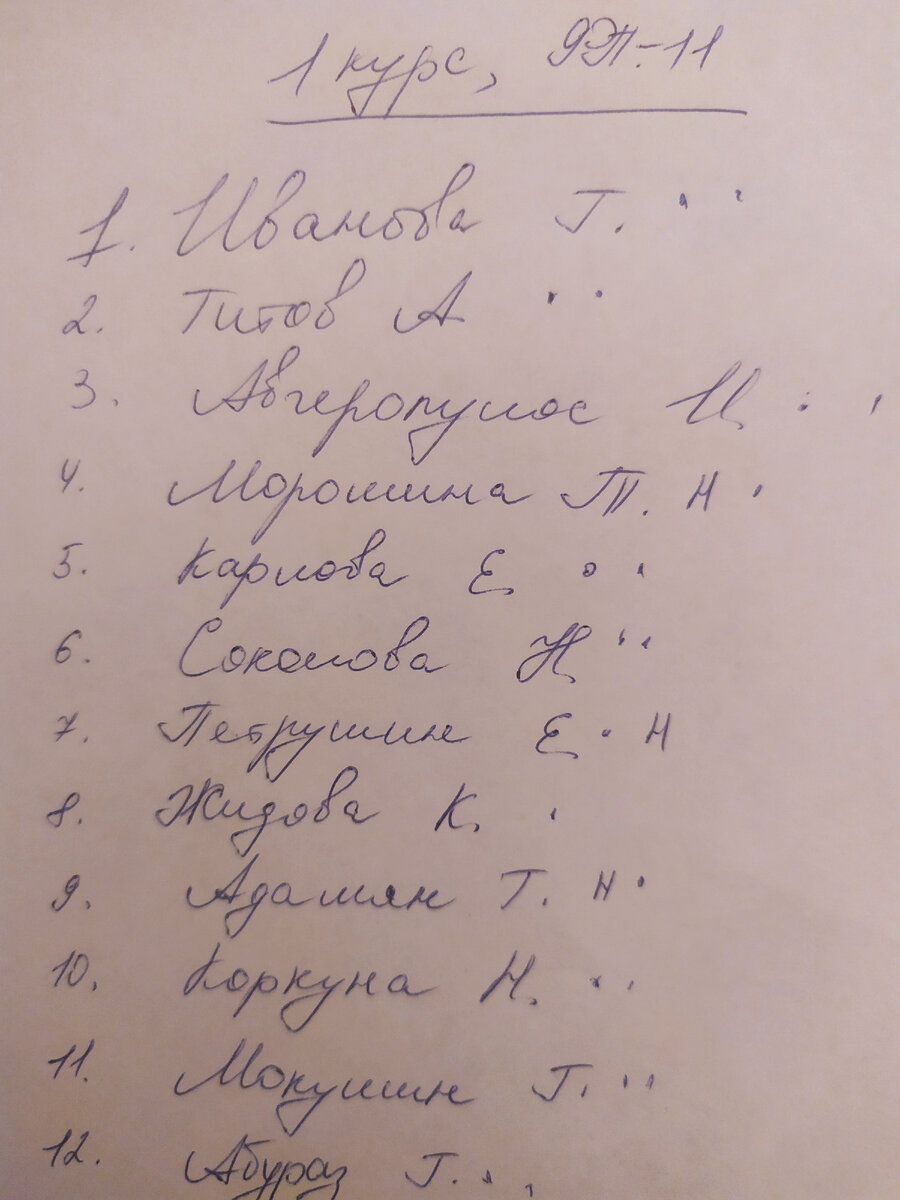 1 курс, ЯЭП-11
1. Иванова Г.
2. Титов А
3. Авгеропулос Ц
4. Морошина Т. Н
5. Карлова Е
6. Соколова Н
7. Петрушин Е. Н
8. Жидова К.
9. Адамян Г. Н
10. Коркуна Н.
11. Мокушин Г.
12. Абураз Г.